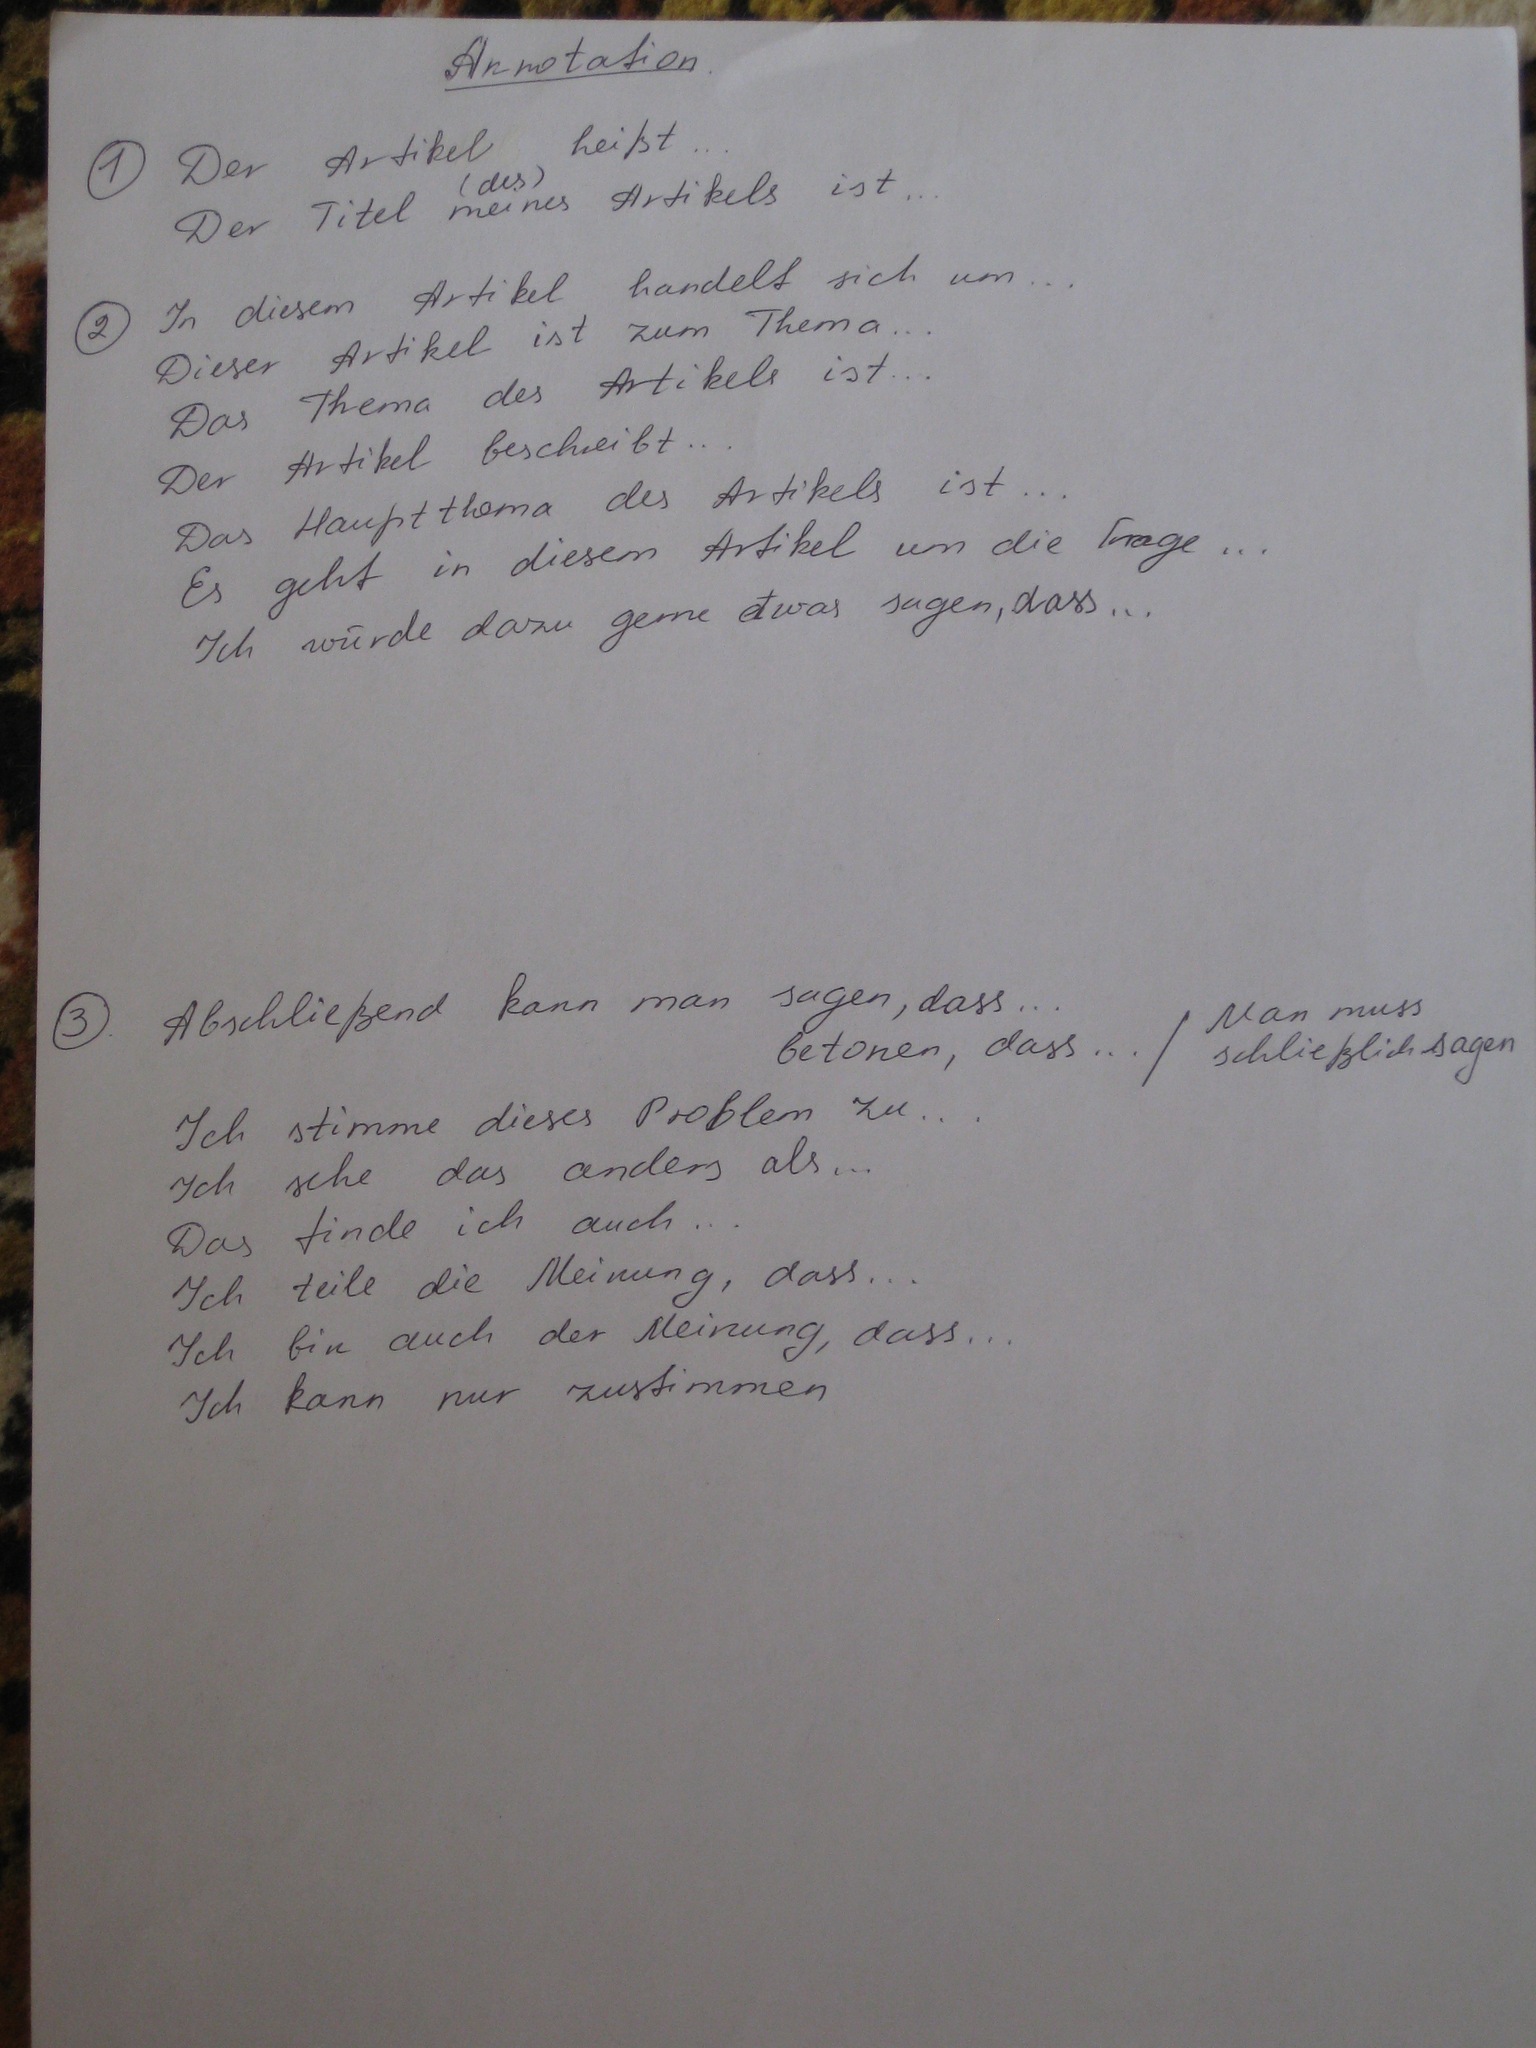 Annotation.
① Der Artikel heißt...
(des)
Der Titel meines Artikels ist...
② In diesem Artikel handelt sich um...
Dieser Artikel ist zum Thema...
Das Thema des Artikels ist...
Der Artikel beschreibt...
Das Hauptthema des Artikels ist...
Es geht in diesem Artikel um die Frage...
Ich würde dazu gerne etwas sagen, dass...
③. Abschließend kann man sagen, dass...
betonen, dass... / Man muss
schließlich sagen
Ich stimme dieses Problem zu....
Ich sehe das anders als...
Das finde ich auch...
Ich teile die Meinung, dass...
Ich bin auch der Meinung, dass...
Ich kann nur zustimmen